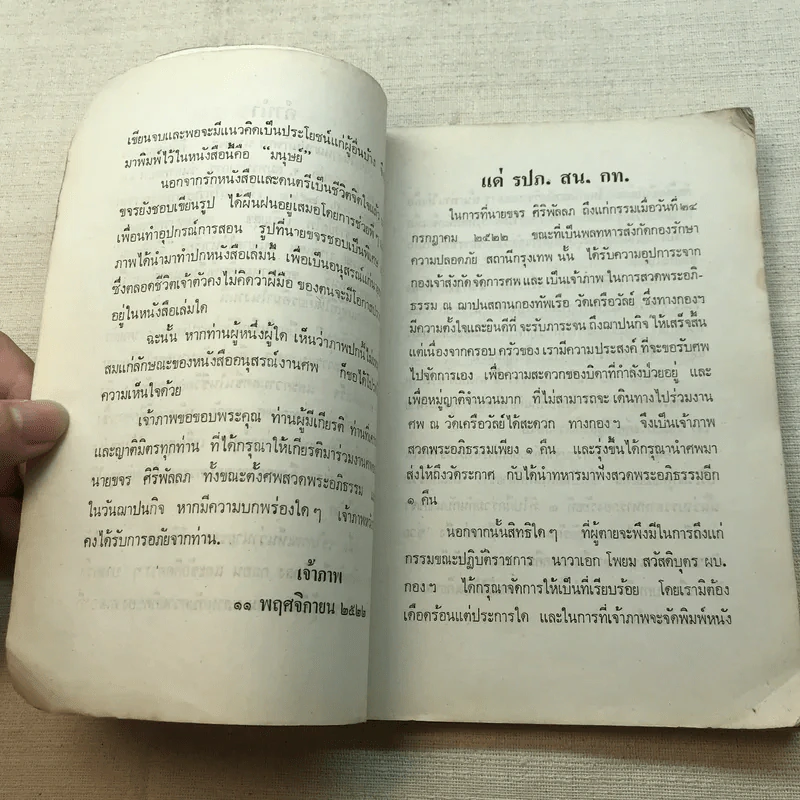 เขียนจบและพอจะมีแนวคิดเป็นประโยชน์แก่ผู้อื่นบ้าง
มาพิมพ์ไว้ในหนังสือนี้คือ “มนุษย์”
นอกจากรักหนังสือและดนตรีเป็นชีวิตจิตใจแล้ว
ขจรยังชอบเขียนรูป ได้ฝึนฝนอยู่เสมอโดยการช่วยพี่
เพื่อนทำอุปกรณ์การสอน รูปที่นายขจรชอบเป็นพิเศษ
ภาพได้นำมาทำปกหนังสือเล่มนี้ เพื่อเป็นอนุสรณ์แก่
ซึ่งตลอดชีวิตเจ้าตัวคงไม่คิดว่าฝีมือ ของตนจะมีโอกาส
อยู่ในหนังสือเล่มใด
ฉะนั้น หากท่านผู้หนึ่งผู้ใด เห็นว่าภาพปกนี้ไม่
สมแก่ลักษณะของหนังสืออนุสรณ์งานศพ ก็ขอได้โปรด
ความเห็นใจด้วย
เจ้าภาพขอขอบพระคุณ ท่านผู้มีเกียรติ ท่านที่
และญาติมิตรทุกท่าน ที่ได้กรุณาให้เกียรติมาร่วมงาน
นายขจร ศิริพัลลภ ทั้งขณะตั้งศพสวดพระอภิธรรม
ในวันฌาปนกิจ หากมีความบกพร่องใด ๆ เจ้าภาพ
คงได้รับการอภัยจากท่าน.
เจ้าภาพ
๑๑ พฤศจิกายน ๒๕๒๒
แด่ รปภ. สน. กท.
ในการที่นายขจร ศิริพัลลภ ถึงแก่กรรมเมื่อวันที่ ๒๔
กรกฎาคม ๒๕๒๒ ขณะที่เป็นพลทหารสังกัดกองรักษา
ความปลอดภัย สถานีกรุงเทพ นั้น ได้รับความอุปการะจาก
กองเจ้าสังกัด จัดการศพ และ เป็นเจ้าภาพ ในการสวดพระอภิ-
ธรรม ณ ฌาปนสถานกองทัพเรือ วัดเครือวัลย์ ซึ่งทางกองฯ
มีความตั้งใจและยินดีที่ จะรับภาระจน ถึงฌาปนกิจ ให้เสร็จสิ้น
แต่เนื่องจากครอบ ครัวของ เรามีความประสงค์ ที่จะขอรับศพ
ไปจัดการเอง เพื่อความสะดวกของบิดาที่กำลังป่วยอยู่ และ
เพื่อหมู่ญาติจำนวนมาก ที่ไม่สามารถจะ เดินทางไปร่วมงาน
ศพ ณ วัดเครือวัลย์ได้สะดวก ทางกองฯ จึงเป็นเจ้าภาพ
สวดพระอภิธรรมเพียง ๑ คืน และรุ่งขึ้นได้กรุณานำศพมา
ส่งให้ถึงวัดระกาศ กับได้นำทหารมาฟังสวดพระอภิธรรมอีก
๑ คืน
นอกจากนั้นสิทธิใด ๆ ที่ผู้ตายจะพึงมีในการถึงแก่
กรรมขณะปฏิบัติราชการ นาวาเอก โพยม สวัสดิบุตร ผบ.
กองฯ ได้กรุณาจัดการให้เป็นที่เรียบร้อย โดยเรามิต้อง
เดือดร้อนแต่ประการใด และในการที่เจ้าภาพจะจัดพิมพ์หนัง